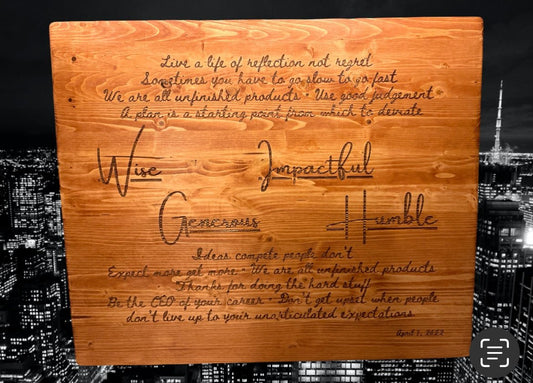 Live a life of reflection not regret
Sometimes you have to go slow to go fast
We are all unfinished products • Use good judgement
A plan is a starting point from which to deviate
Wise Impactful
Generous Humble
Ideas compete people don't
Expect more get more • We are all unfinished products
Thanks for doing the hard stuff
Be the CEO of your career • Don't get upset when people
don't live up to your unarticulated expectations
April 7, 2022